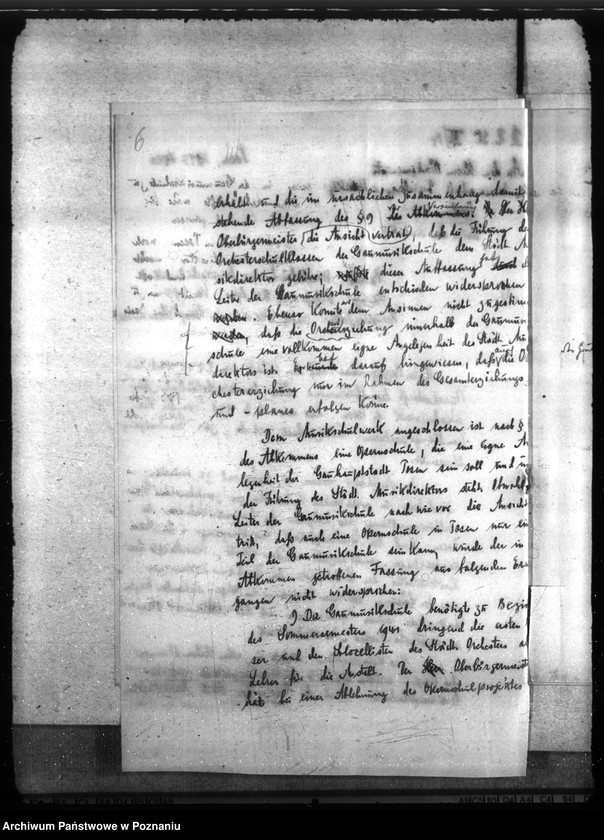 6
erhält und die im ursächlichen Zusammenhange damit
stehende Abfassung des § 9 des Abkommens.
Oberbürgermeister die Ansicht vertrat, daß die Führung de
Orchesterschulklassen der Gaumusikschule dem Städt. M
sikdirektor gebühre; dieser Auffassung hat de
Leiter der Gaumusikschule entschieden widersprochen
Ebenso konnte dem Ansinnen nicht zugestim
daß die Orchestererziehung innerhalb der Gaumus
schule eine vollkommen eigne Angelegenheit des Städt. Mu
direktors ist. darauf hingewiesen, daß die O
chestererziehung nur im Rahmen des Gesamterziehungs
und - planes erfolgen könne.
Dem Musikschulwerk angeschlossen ist nach §
des Abkommens eine Opernschule, die eine eigne A
legenheit der Gauhauptstadt Posen sein soll und un
der Führung des Städt. Musikdirektors steht. Obwohl
Leiter der Gaumusikschule nach wie vor die Ansicht
tritt, daß auch eine Opernschule in Posen nur ein
Teil der Gaumusikschule sein kann, wurde der in
Abkommen getroffenen Fassung aus folgenden Er
gangen nicht widersprochen:
1) Die Gaumusikschule benötigte zu Begin
des Sommersemesters 1941 dringend die ersten
ser und den Solocellisten des Städt. Orchesters al
Lehrer für die Anstalt. Der Oberbürgermeist
hat bei einer Ablehnung des Opernschulprojektes
Archiwum Państwowe w Poznaniu